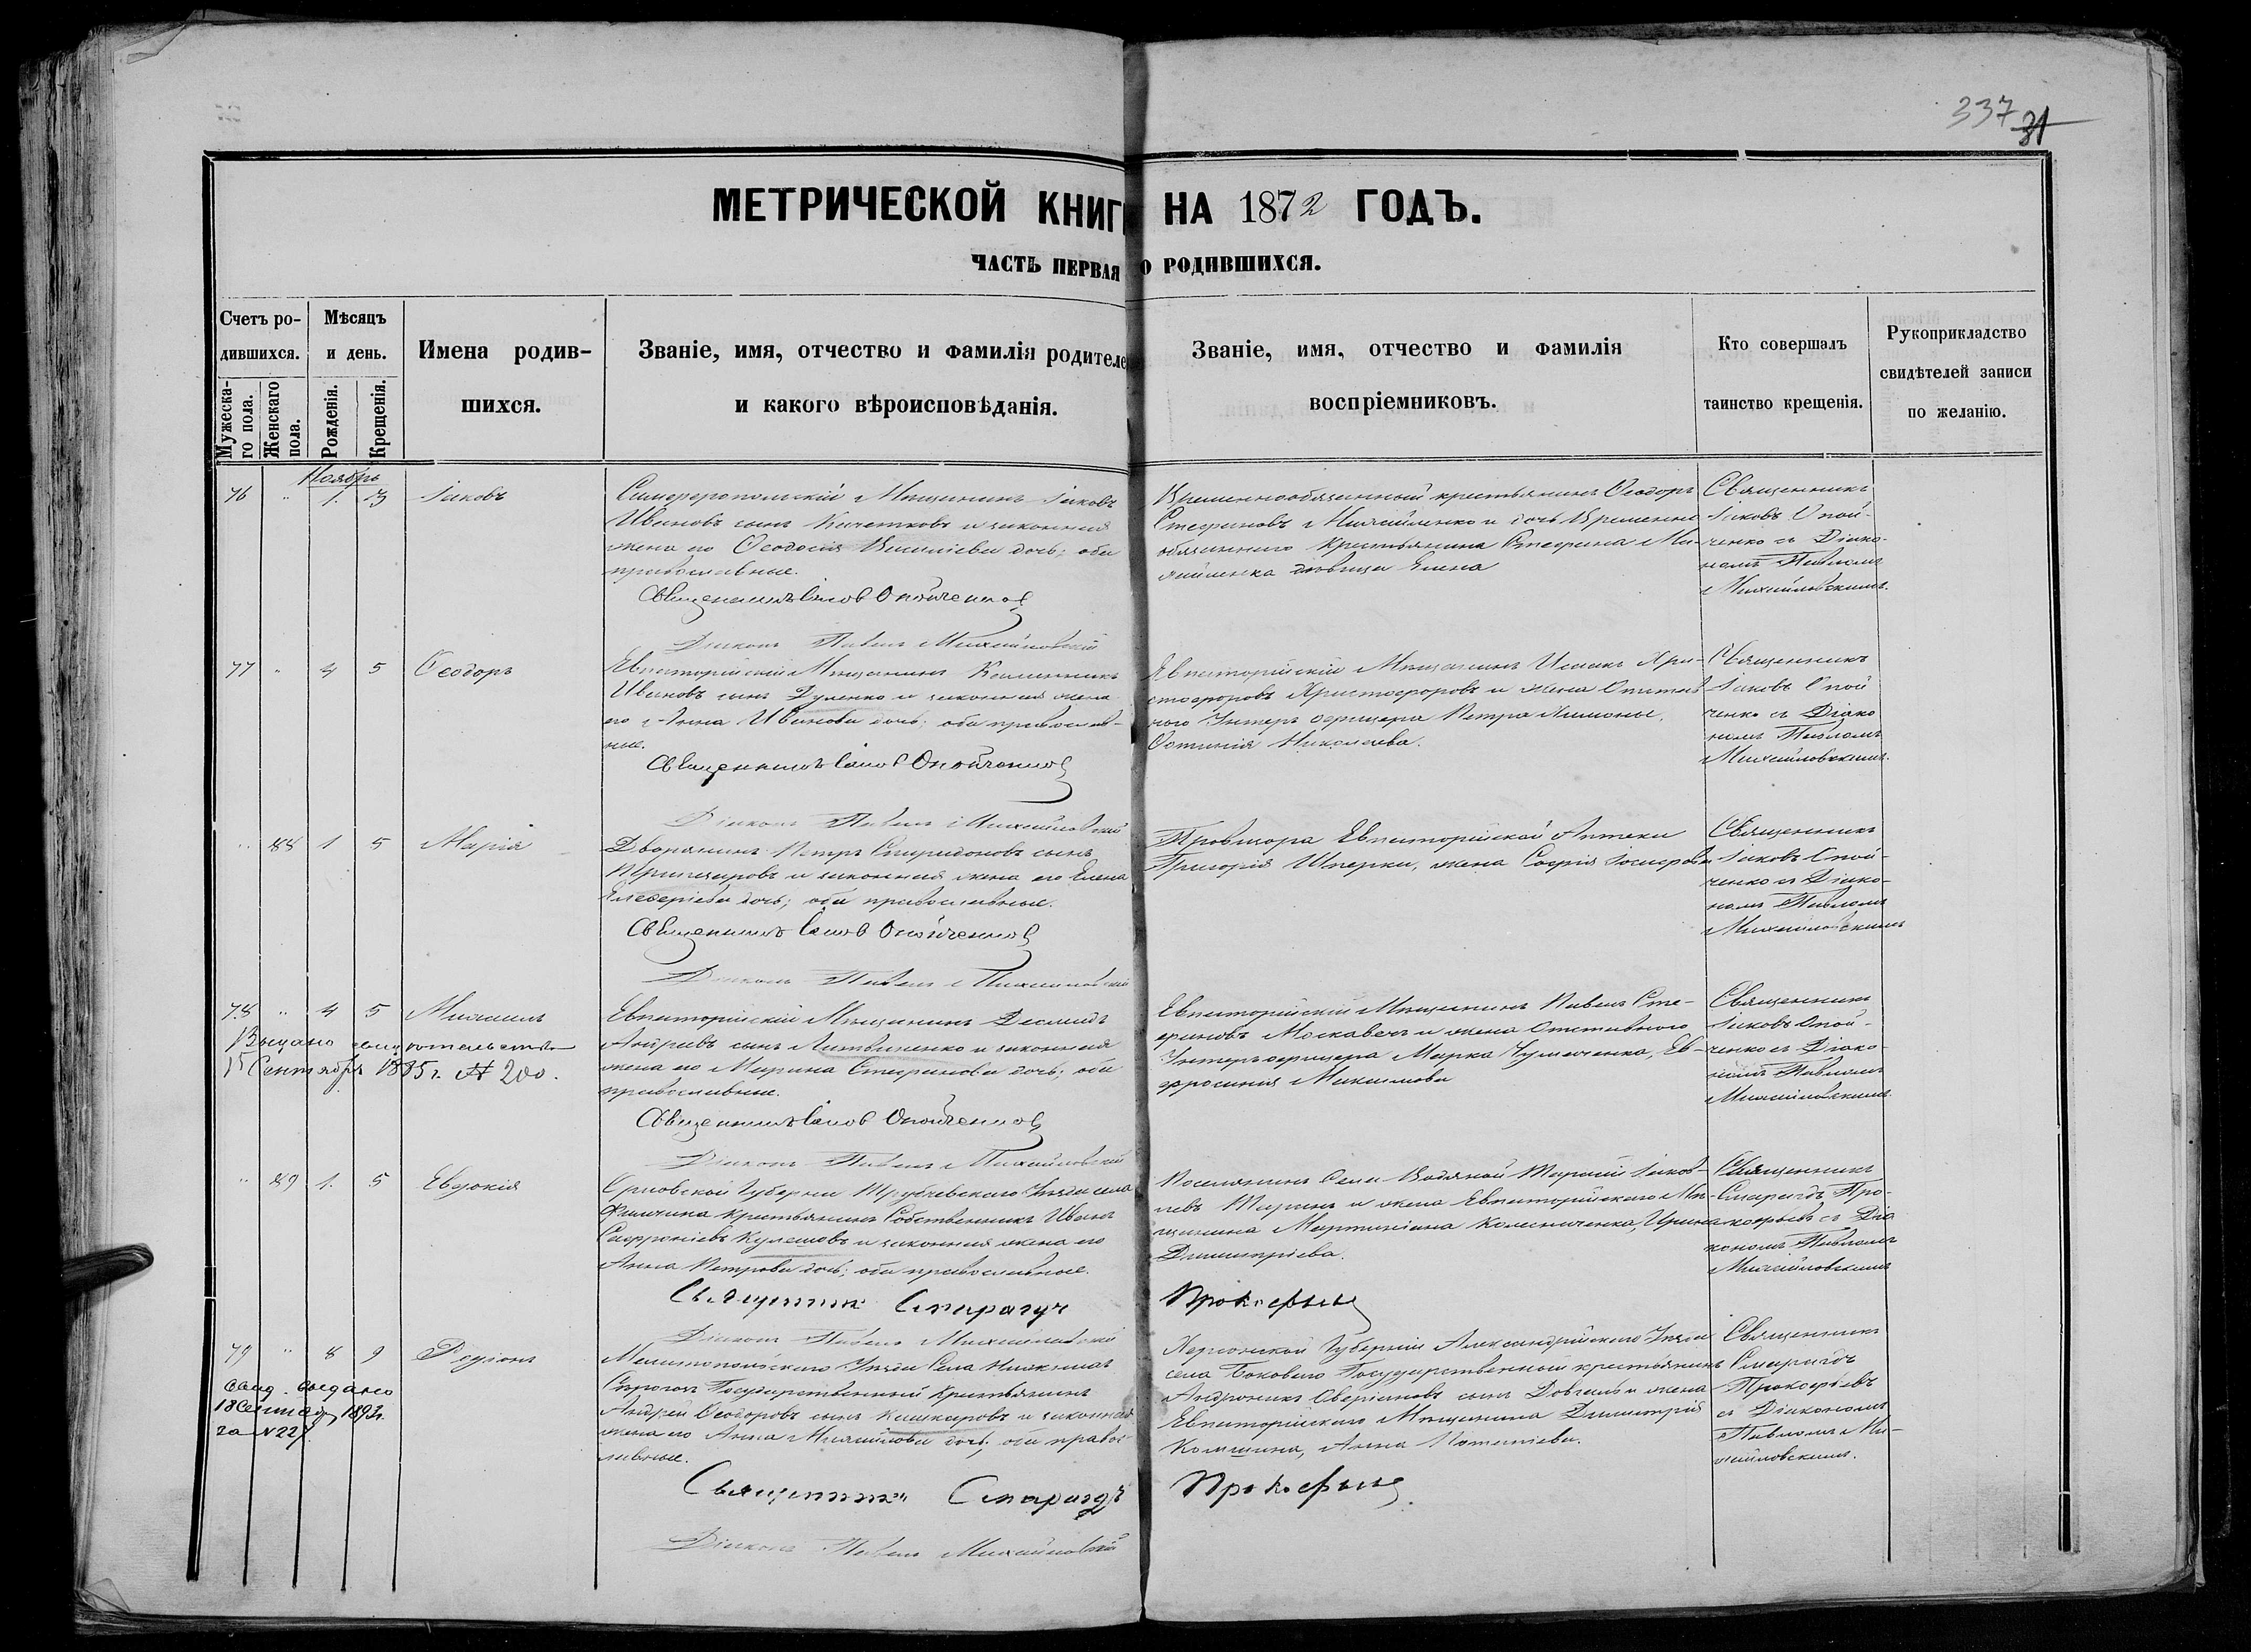 337 31
МЕТРИЧЕСКОЙ КНИГ НА 1872 ГОДЪ.
ЧАСТЬ ПЕРВАЯ О РОДИВШИХСЯ.
Счетъ ро-
дившихся.
Мужеска-
го пола.
Женскаго
пола.
Мѣсяцъ
и день.
Рожденія.
Крещенія.
Имена родив-
шихся.
Званіе, имя, отчество и фамилія родителе
и какого вѣроисповѣданія.
Званіе, имя, отчество и фамилія
воспріемниковъ.
Кто совершалъ
таинство крещенія.
Рукоприкладство
свидѣтелей записи
по желанію.
Ноябрь
76 " 1. 3 Іаковъ
Симферопольскій Мѣщанинъ Іаковъ
Ивановъ сынъ и законная
жена его Ѳеодосія Василіева дочь; оба
православные.
Священникъ Іаковъ Опойченко
Діаконъ Павелъ Михайловскій
Временнообязанный крестьянинъ Ѳеодоръ
Стефановъ Михайленко и дочь Временно
обязаннаго крестьянина Стефана Ми-
хайленка дѣвица Елена
Священникъ
Іаковъ Опой-
ченко съ Діако-
номъ Павломъ
Михайловскимъ.
77 " 4 5 Ѳеодоръ
Евпаторійскій Мѣщанинъ
Ивановъ сынъ Дуленко и законная жена
его Анна Иванова дочь; оба православ-
ные.
Священникъ Іаковъ Опойченко
Діаконъ Павелъ Михайловскій
Евпаторійскій Мѣщанинъ Исаакъ Хри-
стофоровъ Христофоровъ и жена Отстав
ного Унтеръ офицера Петра
Николаева.
Священникъ
Іаковъ Опой
ченко съ Діако
номъ Павломъ
Михайловскимъ.
" 88 1 5 Марія
Дворянинъ Петръ Спиридоновъ сынъ
и законная жена его Елена
Елевферіева дочь; оба православные.
Священникъ Іаковъ Опойченко
Діаконъ Павелъ Михайловскій
Провизора Евпаторійской Аптеки
Григорія Шперки, жена Софія Іосифова
Священникъ
Іаковъ Опой-
ченко съ Діако-
номъ Павломъ
Михайловскимъ
78 " 4 5 Михаилъ
Выдано свидѣтельство
15 Сентября 1885 г. № 200.
Евпаторійскій Мѣщанинъ
сынъ Литвиненко и законная
жена его Марина Стефанова дочь; оба
православные.
Священникъ Іаковъ Опойченко
Діаконъ Павелъ Михайловскій
Евпаторійскій Мѣщанинъ Павелъ Сте-
фановъ и жена Отставного
Унтеръ офицера Марка Чумаченка, Ев-
фросинія Максимова
Священникъ
Іаковъ Опой-
ченко съ Діако-
номъ Павломъ
Михайловскимъ.
" 89 1. 5 Евдокія
Орловской Губерніи Трубчевскаго Уѣзда села
крестьянинъ Собственникъ Иванъ
Софроніевъ Кулешовъ и законная жена его
Анна Петрова дочь; оба православные.
Священникъ Смарагдъ Прокофьевъ
Діаконъ Павелъ Михайловскій
Поселянинъ Села Водяной Тарасій Іаков-
левъ и жена Евпаторійскаго Мѣ-
щанина Мартиніана Колесниченка, Ирина
Димитріева.
Священникъ
Смарагдъ Про-
кофьевъ съ Діа
кономъ Павломъ
Михайловскимъ
79 " 8 9 Родіонъ
Свид. выдано
18 Сентября 1893 г.
за № 227.
Мелитопольскаго Уѣзда Села Нижнихъ
Сѣрогозъ Государственный крестьянинъ
Андрей Ѳеодоровъ сынъ Кашкаровъ и законная
жена его Анна Михайлова дочь; оба правос-
лавные.
Священникъ Смарагдъ Прокофьевъ
Діаконъ Павелъ Михайловскій
Херсонской Губерніи Александрійскаго Уѣзда
села Боковаго Государственный крестьянинъ
Андроникъ сынъ и жена
Евпаторійскаго Мѣщанина Димитрія
Анна
Священникъ
Смарагдъ
Прокофьевъ
съ Діакономъ
Павломъ Ми-
хайловскимъ.